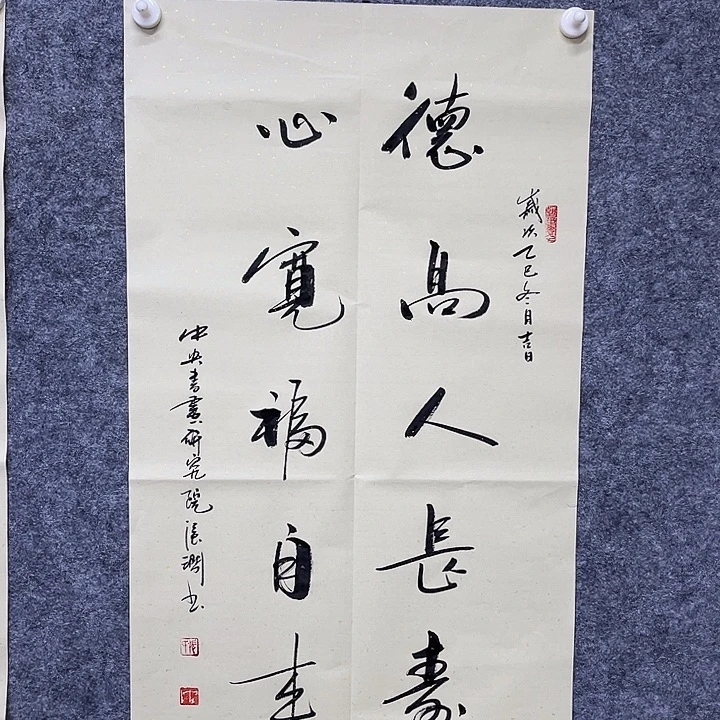 歲次乙巳冬月吉日
德高人長壽
心寬福自来
中央書畫研究院張潤书